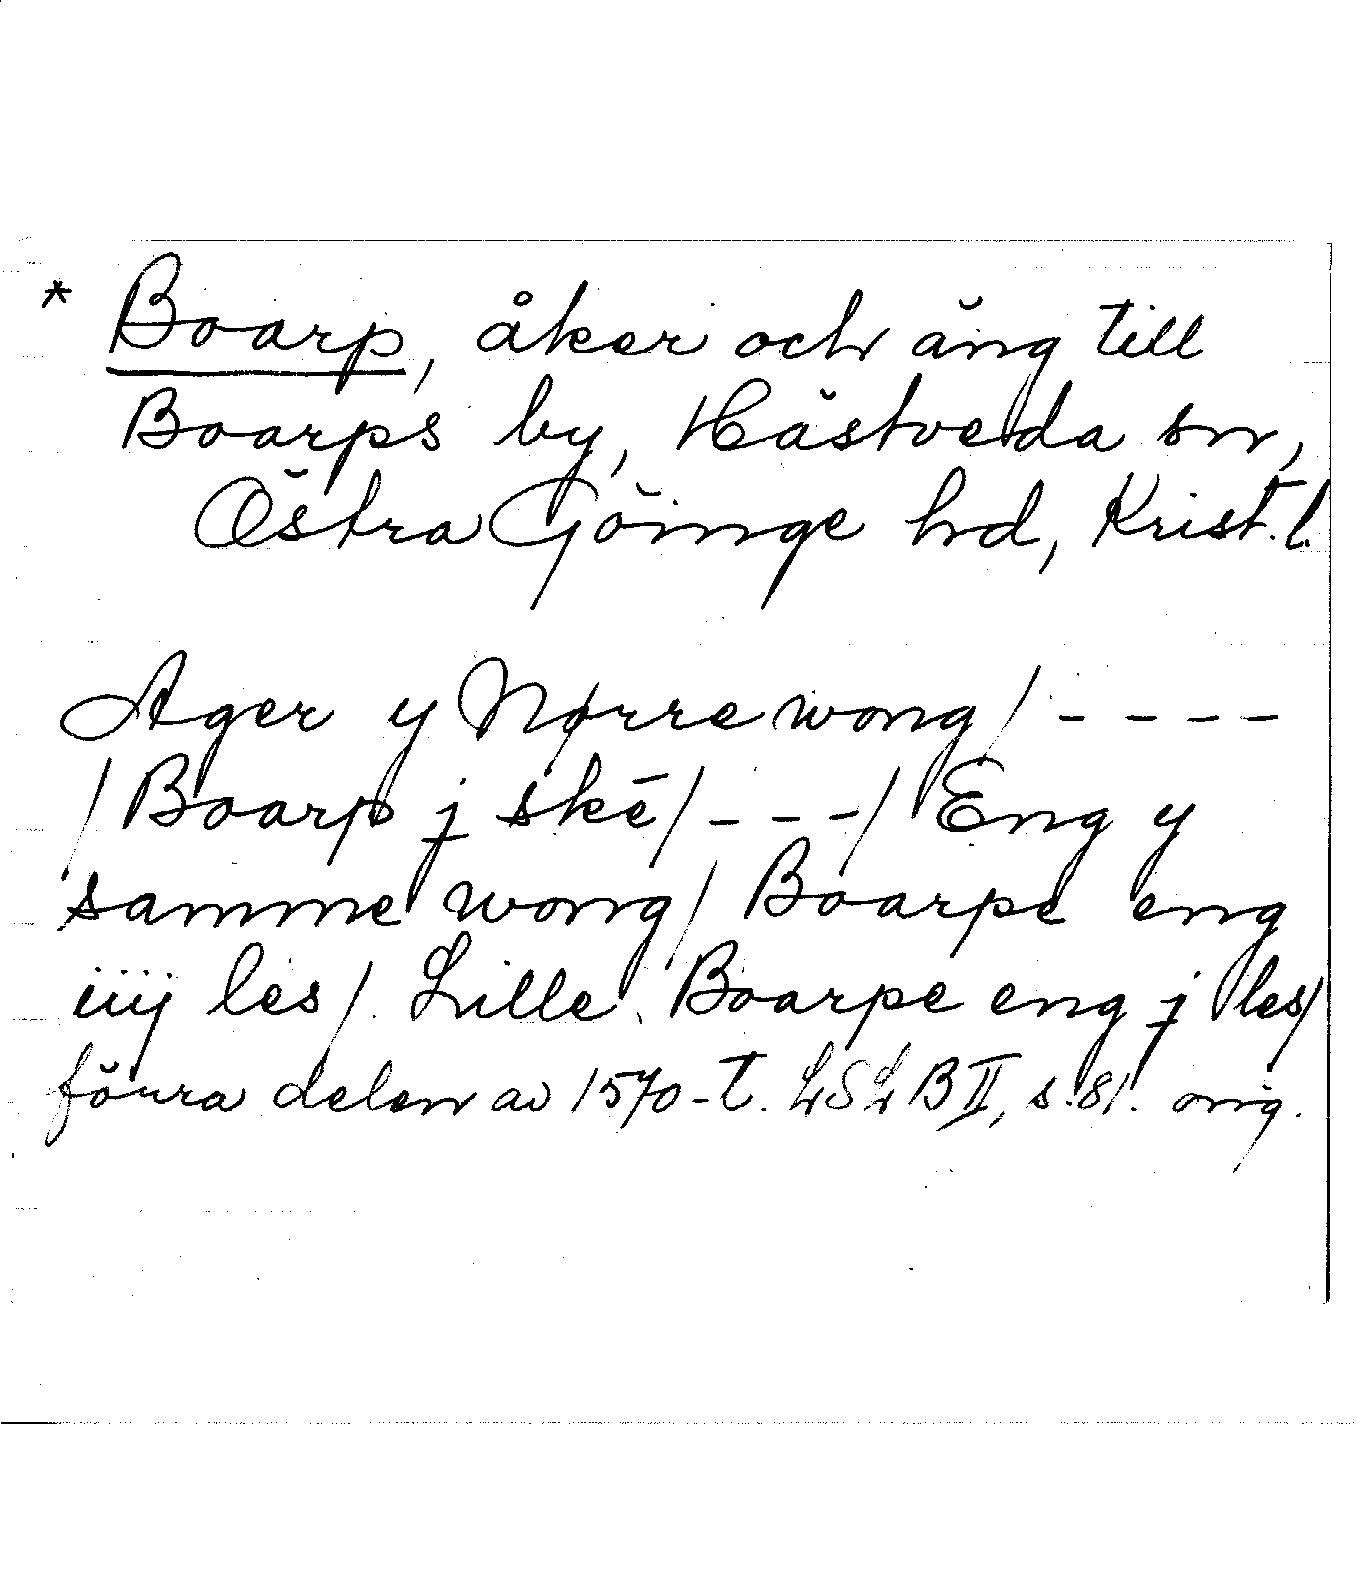 * Boarp, åker och äng till
Boarps by, Hästveda sn,
Östra Göinge hd, Krist. l.
Ager y Nørre wong / - - - -
/ Boarp j skē / - - - / Eng y
samme wong / Boarpe eng
iiij les / Lille Boarpe eng j les /
förra delen av 1570-t. LSLB II, s. 81. orig.